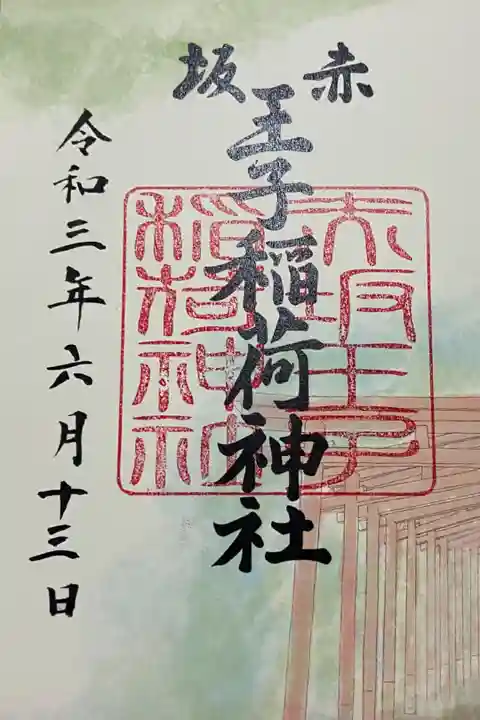 赤坂
王子稲荷神社
大阪王子
稲荷神社
令和三年六月十三日